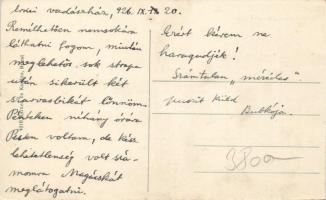 erdei vadászház, 926. IX. 20.
Remélhetően nemsokára
láthatni fogom, miután
meglehetős sok strapa
után sikerült két
szarvasbikát lőnnöm.
Pénteken néhány órára
Pesten voltam, de kép-
telenség volt szá-
momra Magácskát
meglátogatni.
Ezért kérem ne
haragudjék!
Számtalan,
puszit küld
3800